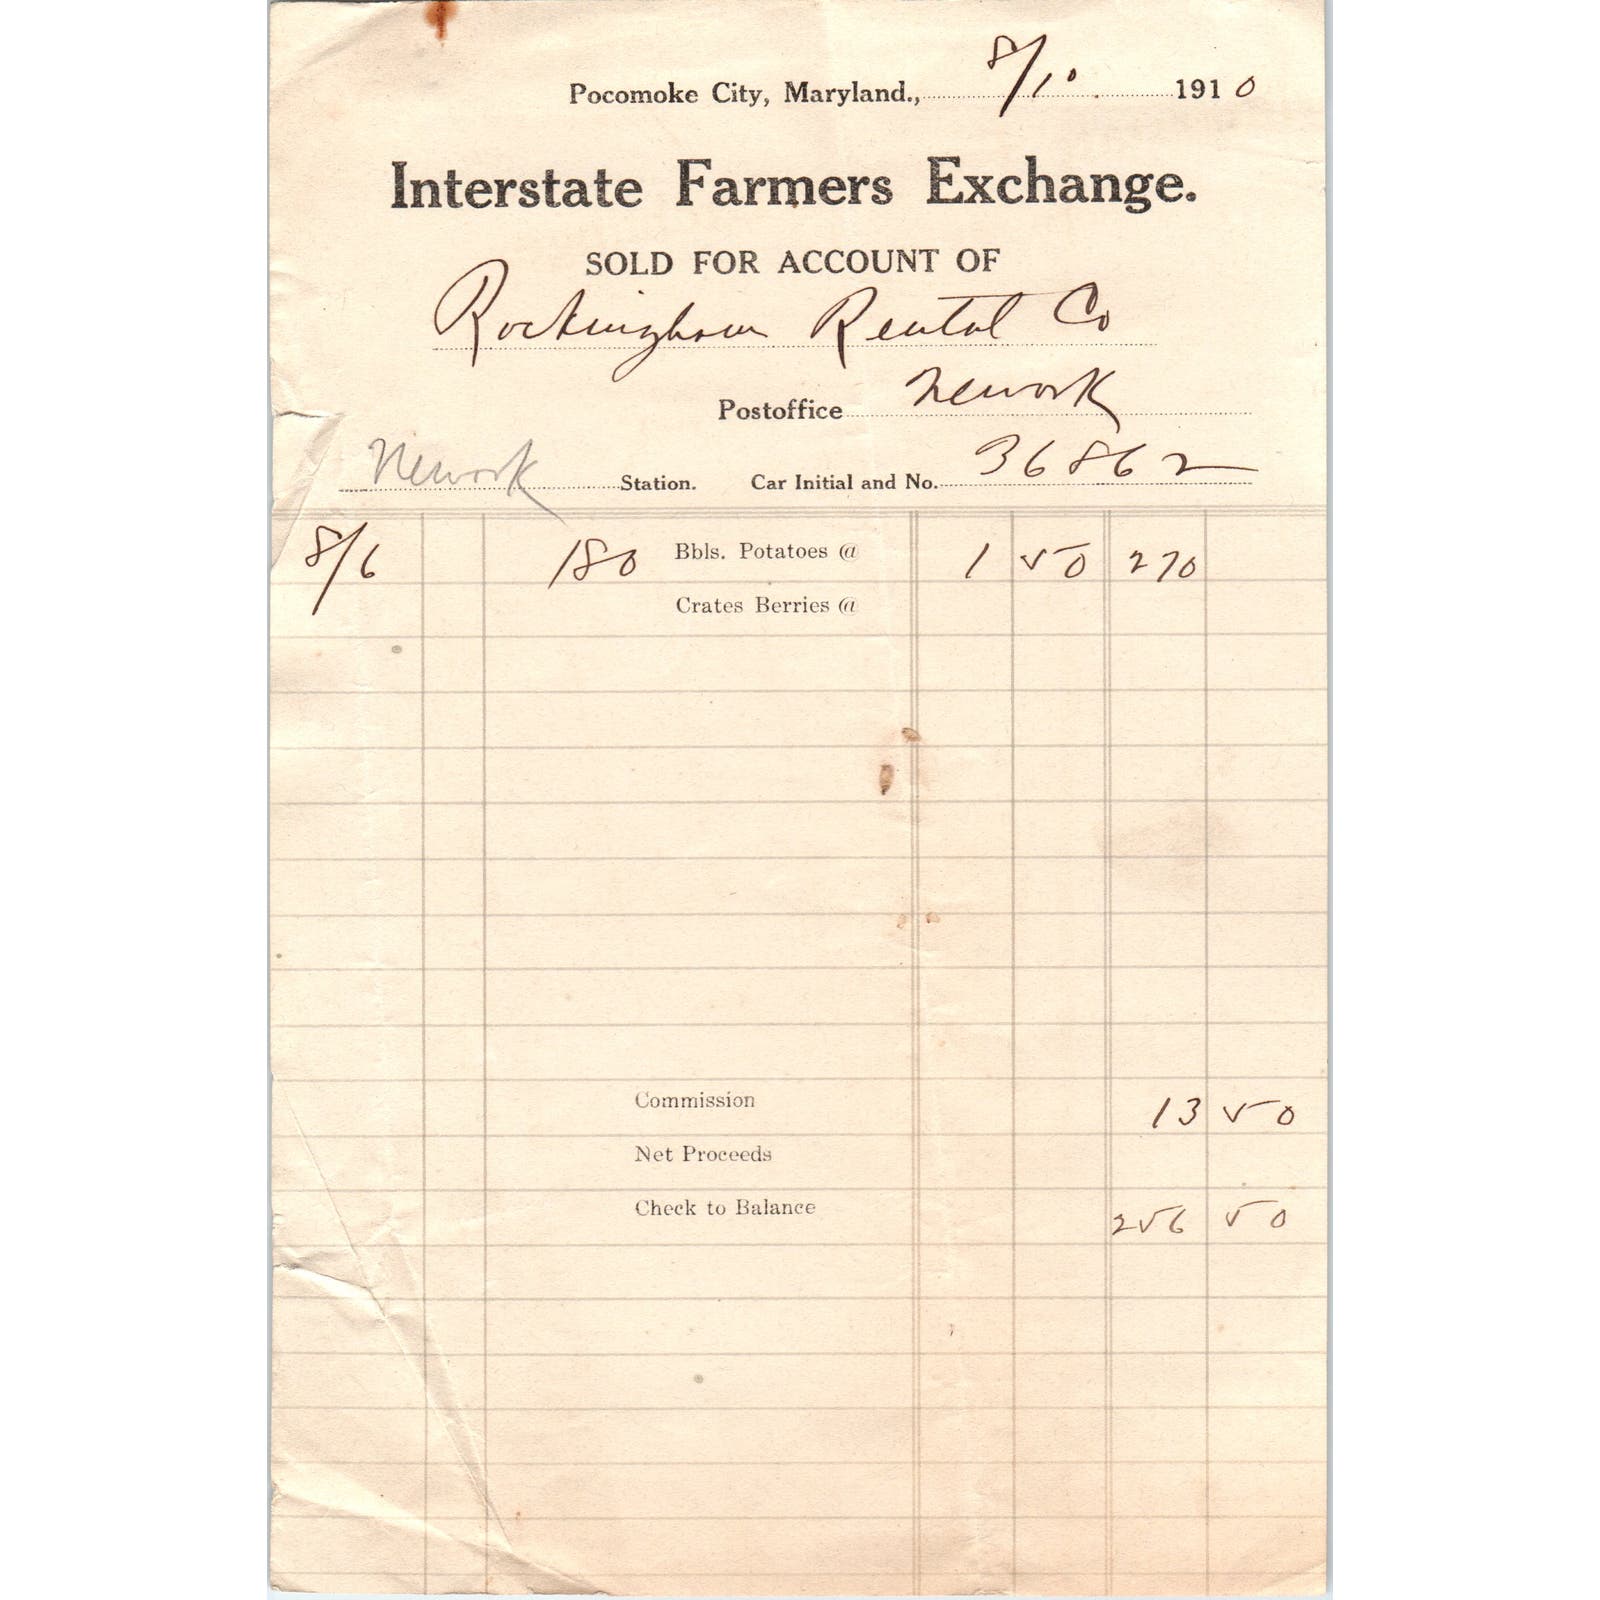 Pocomoke City, Maryland., 8/10. 1910
Interstate Farmers Exchange.
SOLD FOR ACCOUNT OF
Rockingham Rental Co
Postoffice Newark
Newark Station. Car Initial and No. 36862
8/6 180 Bbls. Potatoes @ 1 50 270
Crates Berries @
Commission 13 50
Net Proceeds
Check to Balance 256 50